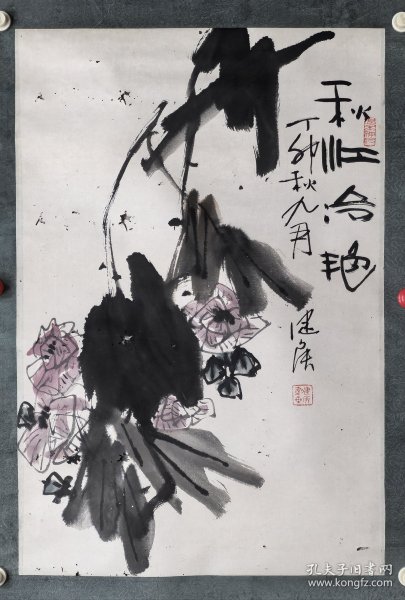 秋江冷艳
丁卯秋九月
建侯
孔夫子旧书网
www.kongfz.com